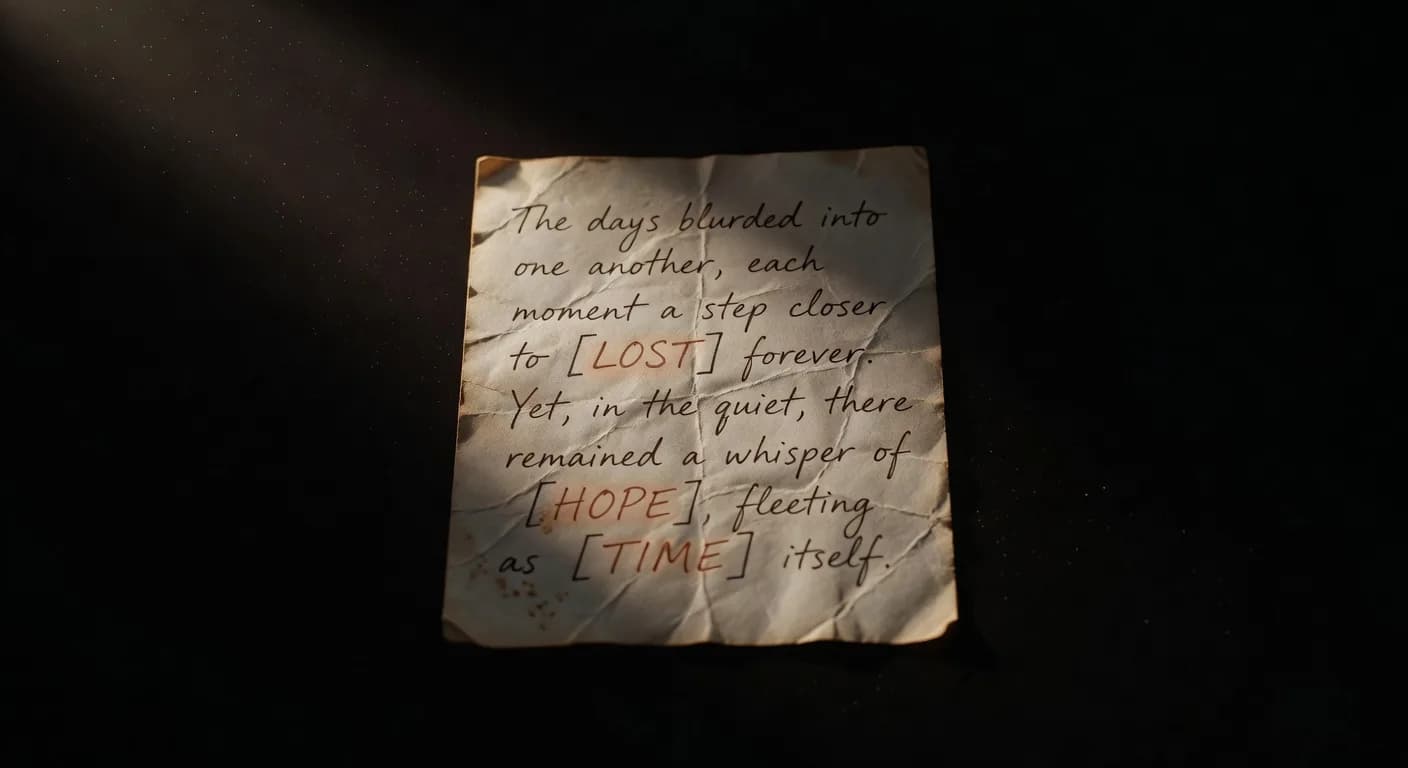 The days blurded into
one another, each
moment a step closer
to [LOST] forever.
Yet, in the quiet, there
remained a whisper of
[HOPE], fleeting
as [TIME] itself.